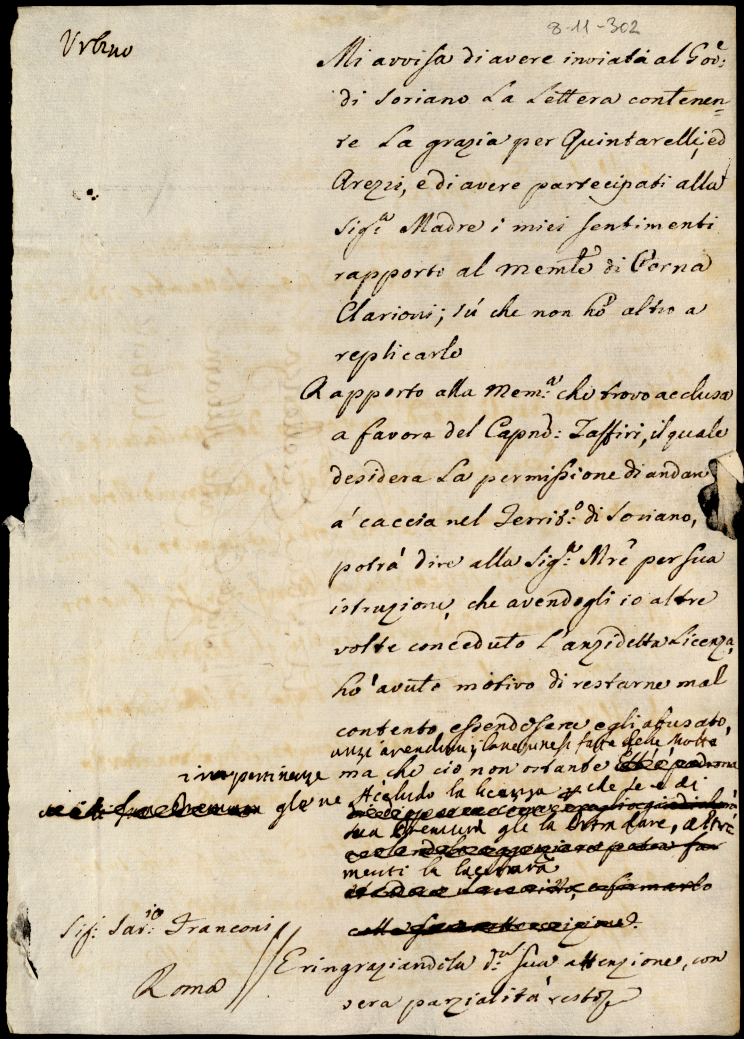 8-11-302
Urbino
Mi avvisa di avere inviata al Gov:
di Soriano La Lettera contenen=
te La grazia per Quintarelli, ed
Arezzi, e di avere partecipati alla
Sig:ra Madre i miei sentimenti
rapporto al mem.le di
Clarioni; sù che non hò altro a
replicarle
Rapporto alla Mem:a che trovo acclusa
a favore del Capnd: Zaffiri, il quale
desidera La permissione di andare
a' caccia nel Territ:o di Soriano,
potrà dire alla Sig:ra Mre per sua
istruzione, che avendogli io altre
volte conceduto l'anzidetta Licenza,
hò avuto motivo di restarne mal
contento, essendosene egli abusato,
anzi avendomi fatte delle Molte
impertinenze
ma che ciò non ostante
gle ne
Accludo la licenza che se è di
sua premura gle la potrà dare, altri
menti la lacererà
Sig: Sav:io Franconi
Roma
E ringraziandola d:a sua attenzione, con
vera parzialità resto